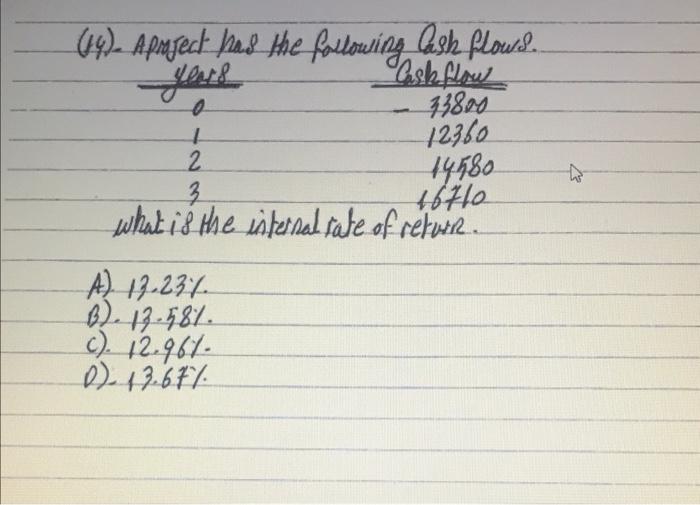 (14)- A project has the following Cash flows.
years Cash flow
0 - 33800
1 12360
2 14580
3 16710
what is the internal rate of return.
A). 13.23%.
B)- 13.58%.
C). 12.96%-
D)- 13.67%.